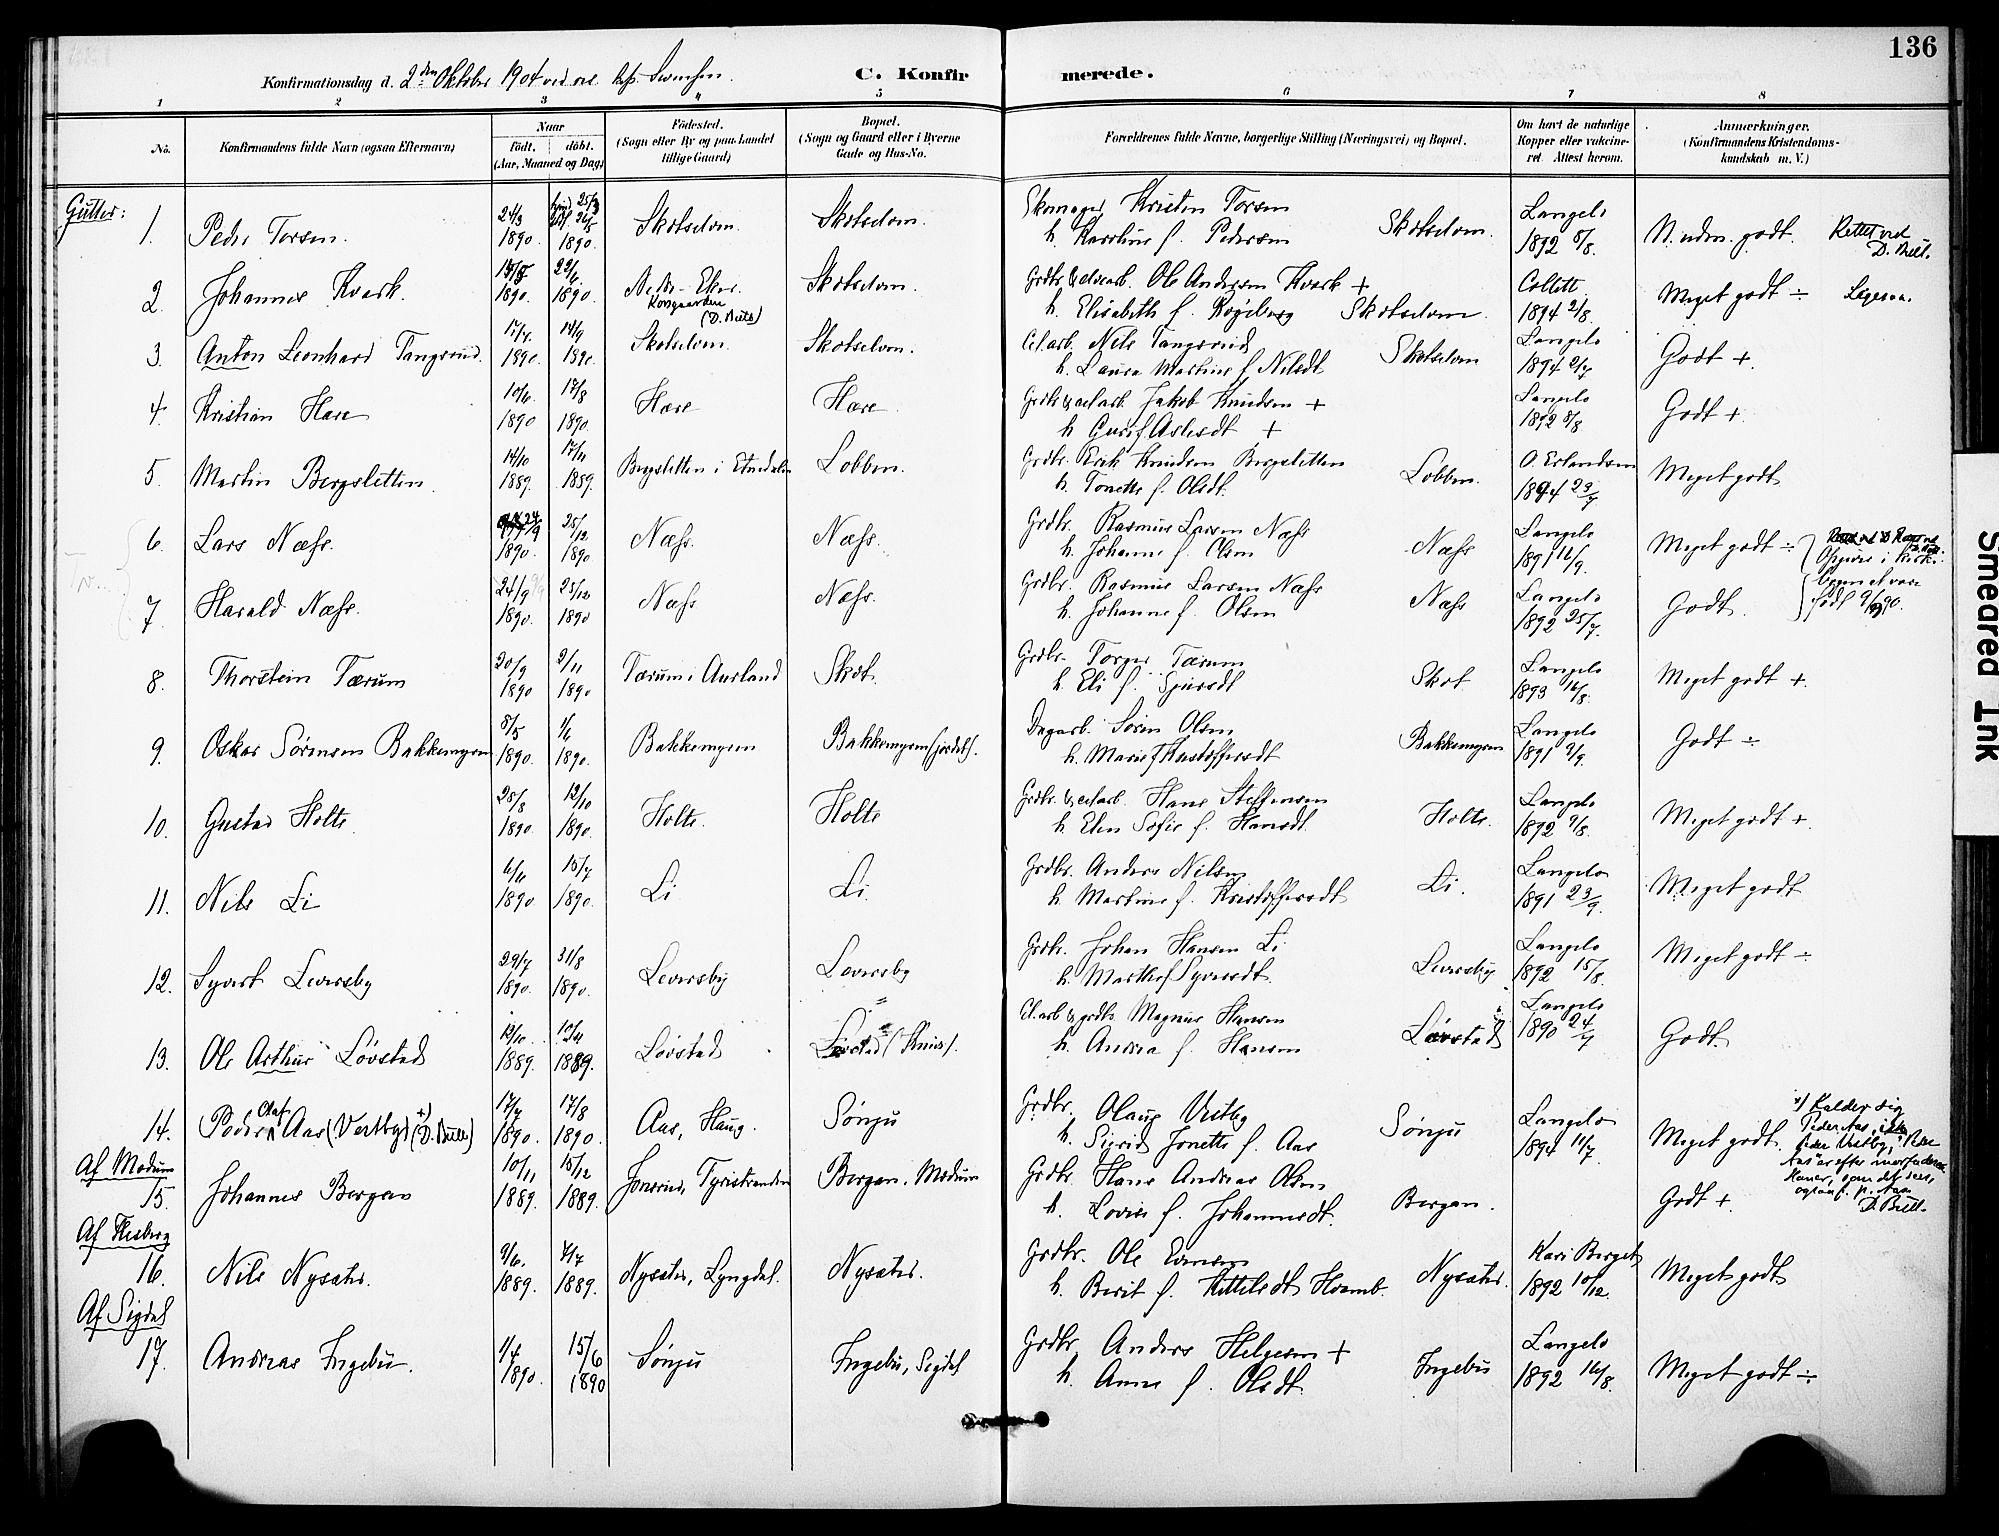 136
Konfirmationsdag d. 2den Oktober 1904 ved
C. Konfirmerede.
1 2 3 4 5 6 7 8
No. Konfirmandens fulde Navn (ogsaa Efternavn) Naar født. døbt. (Aar, Maaned og Dag) Fødested. (Sogn eller By og paa Landet tillige Gaard) Bopæl. (Sogn og Gaard eller i Byerne Gade og Hus-No. Forældrenes fulde Navne, borgerlige Stilling (Næringsvei) og Bopæl. Om havt de naturlige Kopper eller vakcineret. Attest herom. Anmærkninger. (Konfirmandens Kristendomskundskab m. V.)
Gutter:
1. Peder Torsen. 24/3 1890. 1890. Skotselven. Skotselven. Skomager Kristen Torsen Skotselven. Langelo 1892 8/8. N. uden. godt. Rettet ved D. Bull.
h. Karoline f. Pedersen
2. Johannes Kvark. 1890. 29/6 1890. Nedre-Eker. Kongsgaarden (D. Bull) Skotselven. Grdbr. & elvearb. Ole Andersen Kvark + Collett 1894 2/8. Meget godt ÷
h. Elisabeth f. Røgeberg Skotselven.
3. Anton Leonhard Tangsrud. 17/7. 1890. 14/9 1890. Skotselven. Skotselven. Cel.arb. Nils Tangsrud Skotselven Langelo 1894 2/7 Godt +
h. Laura Martine f. Nilsdt
4. Kristian Hære 10/6. 1890 17/8 1890. Hære Hære. Grdbr & cel.arb. Jakob Knudsen + Langelo 1892 8/8 Godt +
h. Guri f. Aslesdt +
5. Martin Bergsletten. 14/10 1889. 17/11 1889. Bergsletten i Etnedalen Lobben. Grdbr. Erik Knudsen Bergsletten Lobben. O. Erlandsen 1894 23/7 Meget godt
h. Tonette f. Olsdt.
6. Lars Næss. 24/9 1890. 25/12 1890 Næss. Næss. Grdbr. Rasmus Larsen Næss Næss Langelo 1891 11/9. Meget godt ÷
h. Johanne f. Olsen
7. Harald Næss. 24/9 1890. 25/12 1890 Næss Næss. Grdbr. Rasmus Larsen Næss Næss Langelo 1892 25/7. Godt. født 9/9 90.
h. Johanne f. Olsen
8. Thorstein Tærum 20/9 1890 2/11 1890 Tærum i Aurland Skot. Grdbr. Torger Tærum Skot Langelo 1893 16/8. Meget godt +
h. Eli f. Sjursdt
9. Oskar Sørensen Bakkemyren 8/5 1890. 1/6 1890. Bakkemyren Bakkemyren (jordet). Dagarb. Søren Olsen Bakkemyren Langelo 1891 9/9. Godt ÷
h. Marie f. Kristoffersdt
10. Gustav Holte. 25/8 1890. 12/10 1890. Holte. Holte Grdbr. & cel.arb. Hans Steffensen Holte. Langelo 1892 9/8. Meget godt +
h. Elen Sofie f. Hansdt.
11. Nils Li 6/6 1890. 15/7 1890. Li Li. Grdbr. Anders Nilsen Li. Langelo 1891 23/9. Meget godt
h. Martine f. Kristoffersdt
12. Syvert Leversby 29/7 1890. 31/8 1890. Leversby Leversby Grdbr. Johan Hansen Li Leversby Langelo 1892 15/8. Meget godt ÷
h. Marthe f. Syversdt.
13. Ole Arthur Løvstad 12/10 1889. 10/11 1889. Løvstad Løvstad (Knive). Cel.arb & grdbr. Magnus Hansen Løvstad Langelo 1890 24/7 Godt.
h. Andrea f. Hansen
14. Peder Olaf Aas (Vestby) +) (D. Bull) 17/7 1890. 17/8 1890. Aas, Haug. Sønju Grdbr. Olaus Vestby Sønju Langelo 1894 11/7 Meget godt. +) Kalder sig Peder Aas, ikke Peder Vestby, Aas er efter morfaderen D. Bull.
h. Sigrid Jonette f. Aas
Af Modum
15. Johannes Bergan 10/11 1889. 15/12 1889. Jonsrud, Tyristranden Bergan, Modum Grdbr. Hans Andreas Olsen Bergan. Godt +
h. Lovise f. Johannesdt.
Af Flesberg
16. Nils Nysæter. 9/6. 1889. 7/7 1889. Nysæter, Lyngdal. Nysæter. Grdbr. Ole Evensen Nysæter. Kari Berget 1892 10/12. Meget godt
h. Berit f. Kittelsdt Hvamb.
Af Sigdal
17. Andreas Ingebu. 1/4 1890. 15/6 1890 Sønju Ingebu, Sigdal Grdbr. Anders Helgesen + Ingebu Langelo 1892 16/8. Meget godt ÷
h. Anne f. Olsdt
Smeared Ink